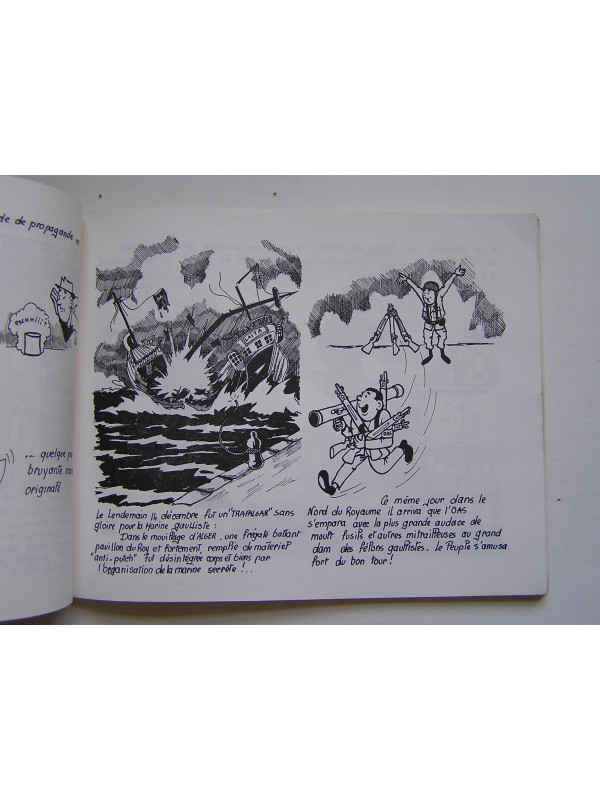 de propagande
PSCHHIIII
... quelque
bruyante
originate
Le Lendemain 14 décembre fut un "TRAFALGAR" sans
gloire pour la Marine gaulliste :
Dans le mouillage d'ALGER, une frégate battant
pavillon du Roy et fortement remplie de matériel
"anti-putch" fut désintégrée corps et biens par
l'organisation de la marine secrète !..
OAS
Ce même jour dans le
Nord du Royaume il arriva que l'OAS
s'empara avec la plus grande audace de
moult fusils et autres mitrailleuses au grand
dam des félons gaullistes. Le Peuple s'amusa
fort du bon tour !